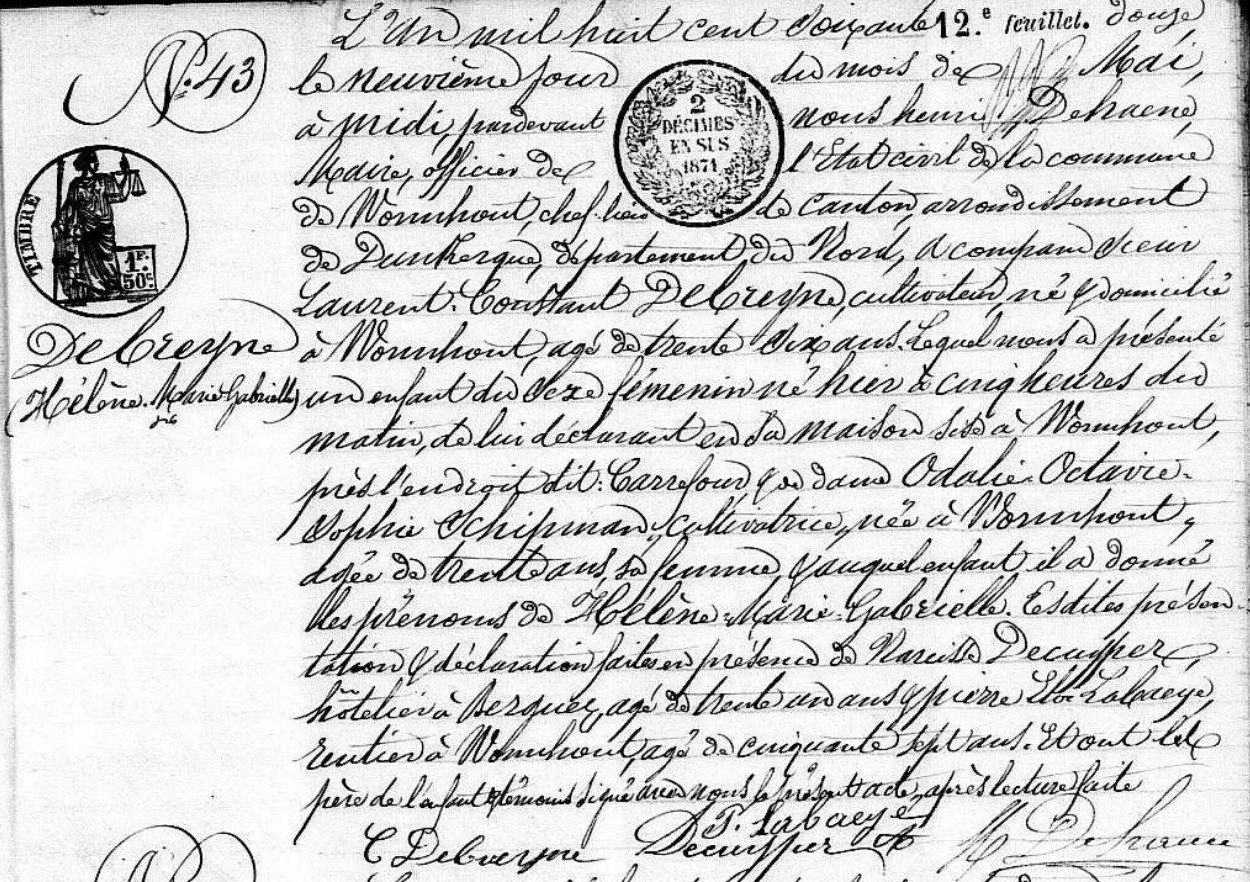 L'An mil huit cent soixante 12.e feuillet. douze
N° 43
le neuvième jour du mois de Mai,
à midi, pardevant nous henri Dehaene,
2
DÉCIMES
EN SUS
1871
Maire, officier de l'Etat civil de la commune
de Wormhout, chef-lieu de canton, arrondissement
TIMBRE
1F.
50c.
de Dunkerque, département du Nord, a comparu sieur
Laurent-Constant DeCreyne, cultivateur, né & domicilié
DeCreyne
à Wormhout, agé de trente six ans. Lequel nous a présenté
(Hélène-Marie-Gabrielle)
un enfant du sexe fémenin né hier à cinq heures du
matin, de lui déclarant en sa maison sise à Wormhout,
près l'endroit dit: Carrefour & de dame Odalie-Octavie-
Sophie Schipman, cultivatrice, née à Wormhout,
agée de trente ans, sa femme, & auquel enfant il a donné
les prénoms de Hélène-Marie-Gabrielle. Esdites présen-
tation & déclaration faites en présence de Narcisse Decuyper,
hôtelier à Bergues, agé de trente un ans & pierre Labaeye,
rentier à Wormhout, agé de cinquante sept ans. Et ont les
père de l'enfant & témoins signé avec nous le présent acte, après lecture faite
P. Labaeye
C DeCreyne Decuyper H Dehaene